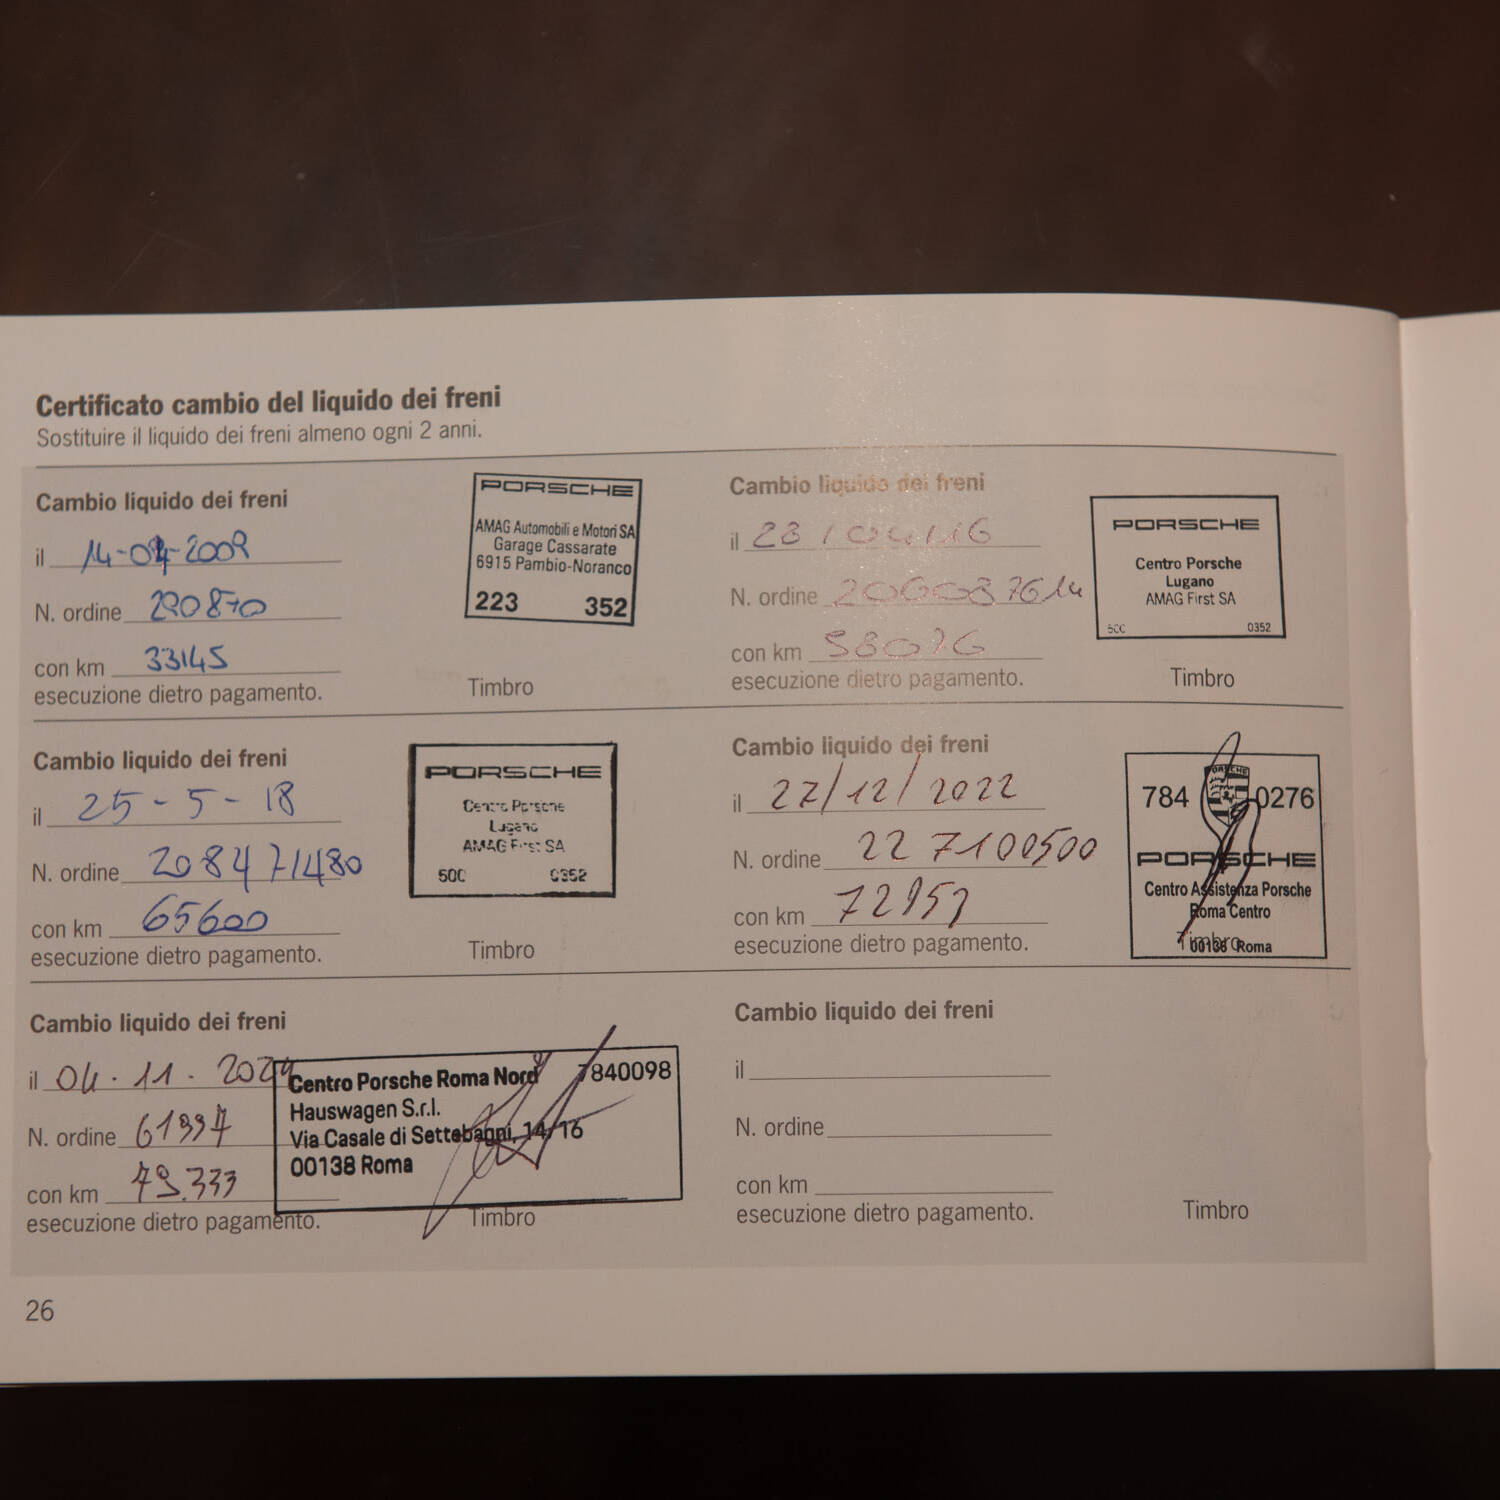 Certificato cambio del liquido dei freni
Sostituire il liquido dei freni almeno ogni 2 anni.
Cambio liquido dei freni
il 14-04-2009
N. ordine 290870
con km 33145
esecuzione dietro pagamento.
PORSCHE
AMAG Automobili e Motori SA
Garage Cassarate
6915 Pambio-Noranco
223 352
Timbro
Cambio liquido dei freni
il 28/04/16
N. ordine 2060087614
con km 58076
esecuzione dietro pagamento.
PORSCHE
Centro Porsche
Lugano
AMAG First SA
500 0352
Timbro
Cambio liquido dei freni
il 25-5-18
N. ordine 208471480
con km 65600
esecuzione dietro pagamento.
PORSCHE
Centro Porsche
Lugano
AMAG First SA
500 0352
Timbro
Cambio liquido dei freni
il 27/12/2022
N. ordine 22 7100500
con km
esecuzione dietro pagamento.
784 0276
PORSCHE
PORSCHE
Centro Assistenza Porsche
Roma Centro
00138 Roma
Timbro
Cambio liquido dei freni
il 04.11.2024
N. ordine 61997
con km 79.333
esecuzione dietro pagamento.
Centro Porsche Roma Nord 7840098
Hauswagen S.r.l.
Via Casale di Settebagni, 14/16
00138 Roma
Timbro
Cambio liquido dei freni
il
N. ordine
con km
esecuzione dietro pagamento.
Timbro
26